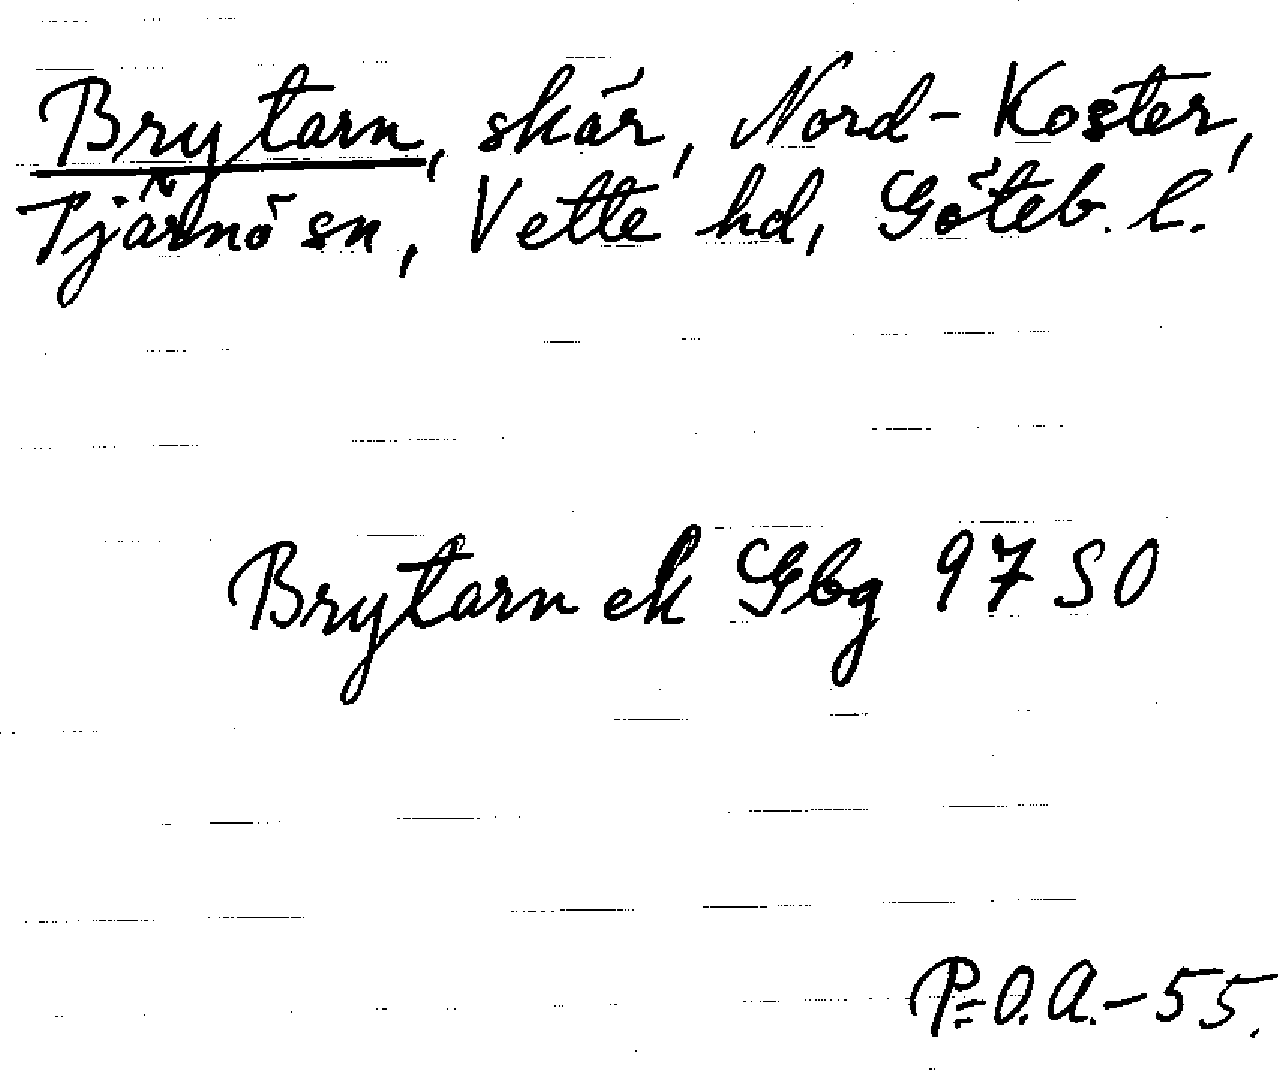 Brytarn, skär, Nord-Koster,
Tjärnö sn, Vette hd, Göteb. l.
Brytarn ek Gbg 97 SO
P=O.A.-55.